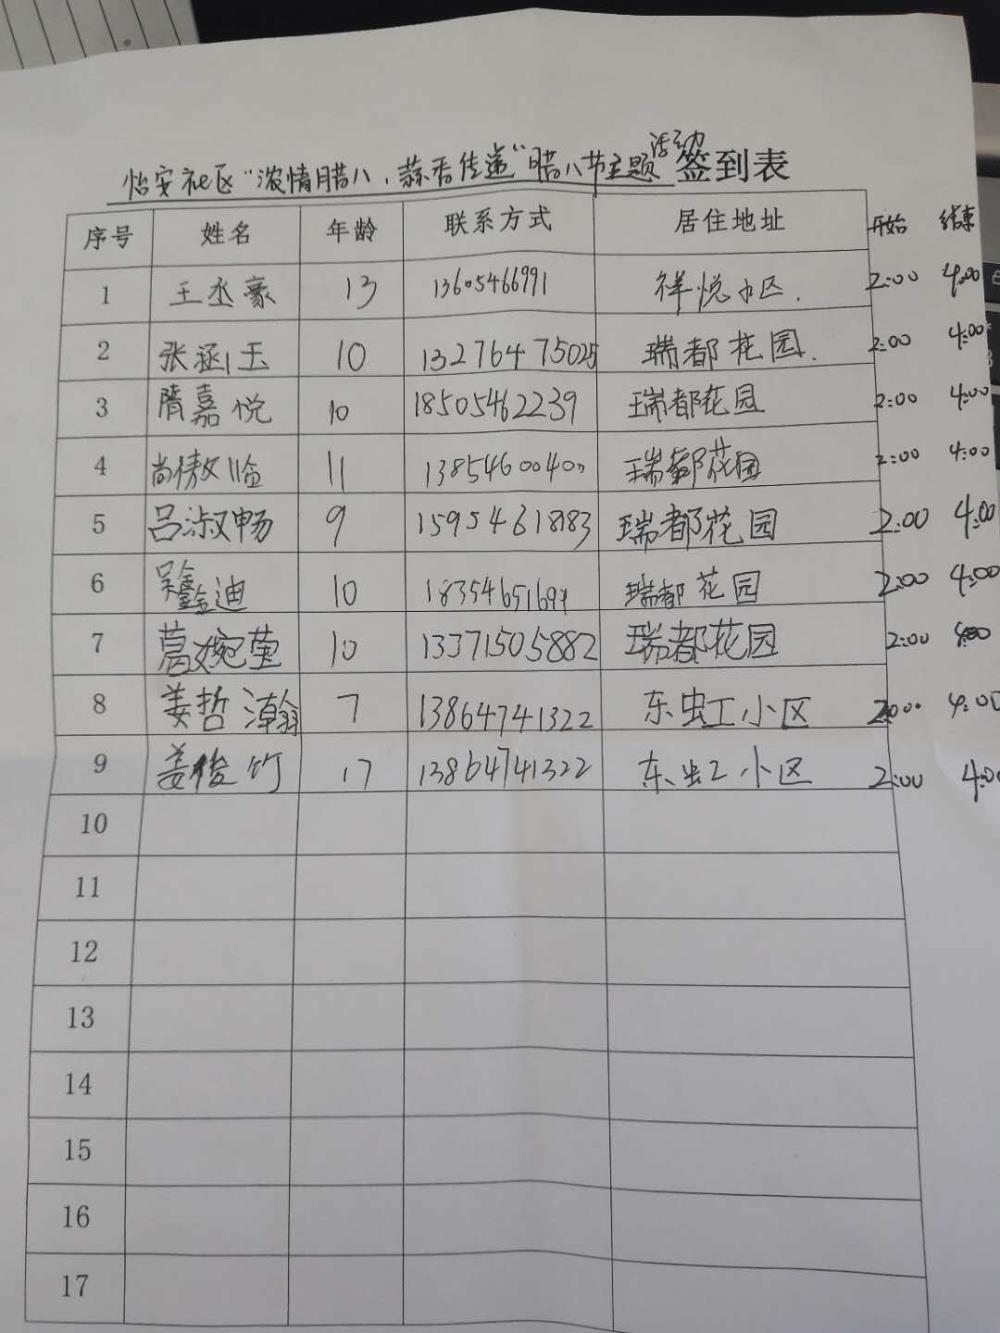 怡安社区“浓情腊八，蒜香传递”腊八节主题活动签到表
序号 姓名 年龄 联系方式 居住地址 开始 结束
1 王丞豪 13 13605466991 祥悦小区. 2:00 4:00
2 张涵玉 10 13276475025 瑞都花园. 2:00 4:00
3 隋嘉悦 10 18505462239 瑞都花园 2:00 4:00
4 尚傲临 11 瑞都花园 2:00 4:00
5 吕淑畅 9 15954618183 瑞都花园 2:00 4:00
6 鑫迪 10 瑞都花园 2:00 4:00
7 葛婉莹 10 13371505882 瑞都花园 2:00 4:00
8 姜哲瀚 7 13864741322 东虹小区 2:00 4:00
9 姜俊竹 17 13864741322 东虹小区 2:00 4:00
10
11
12
13
14
15
16
17